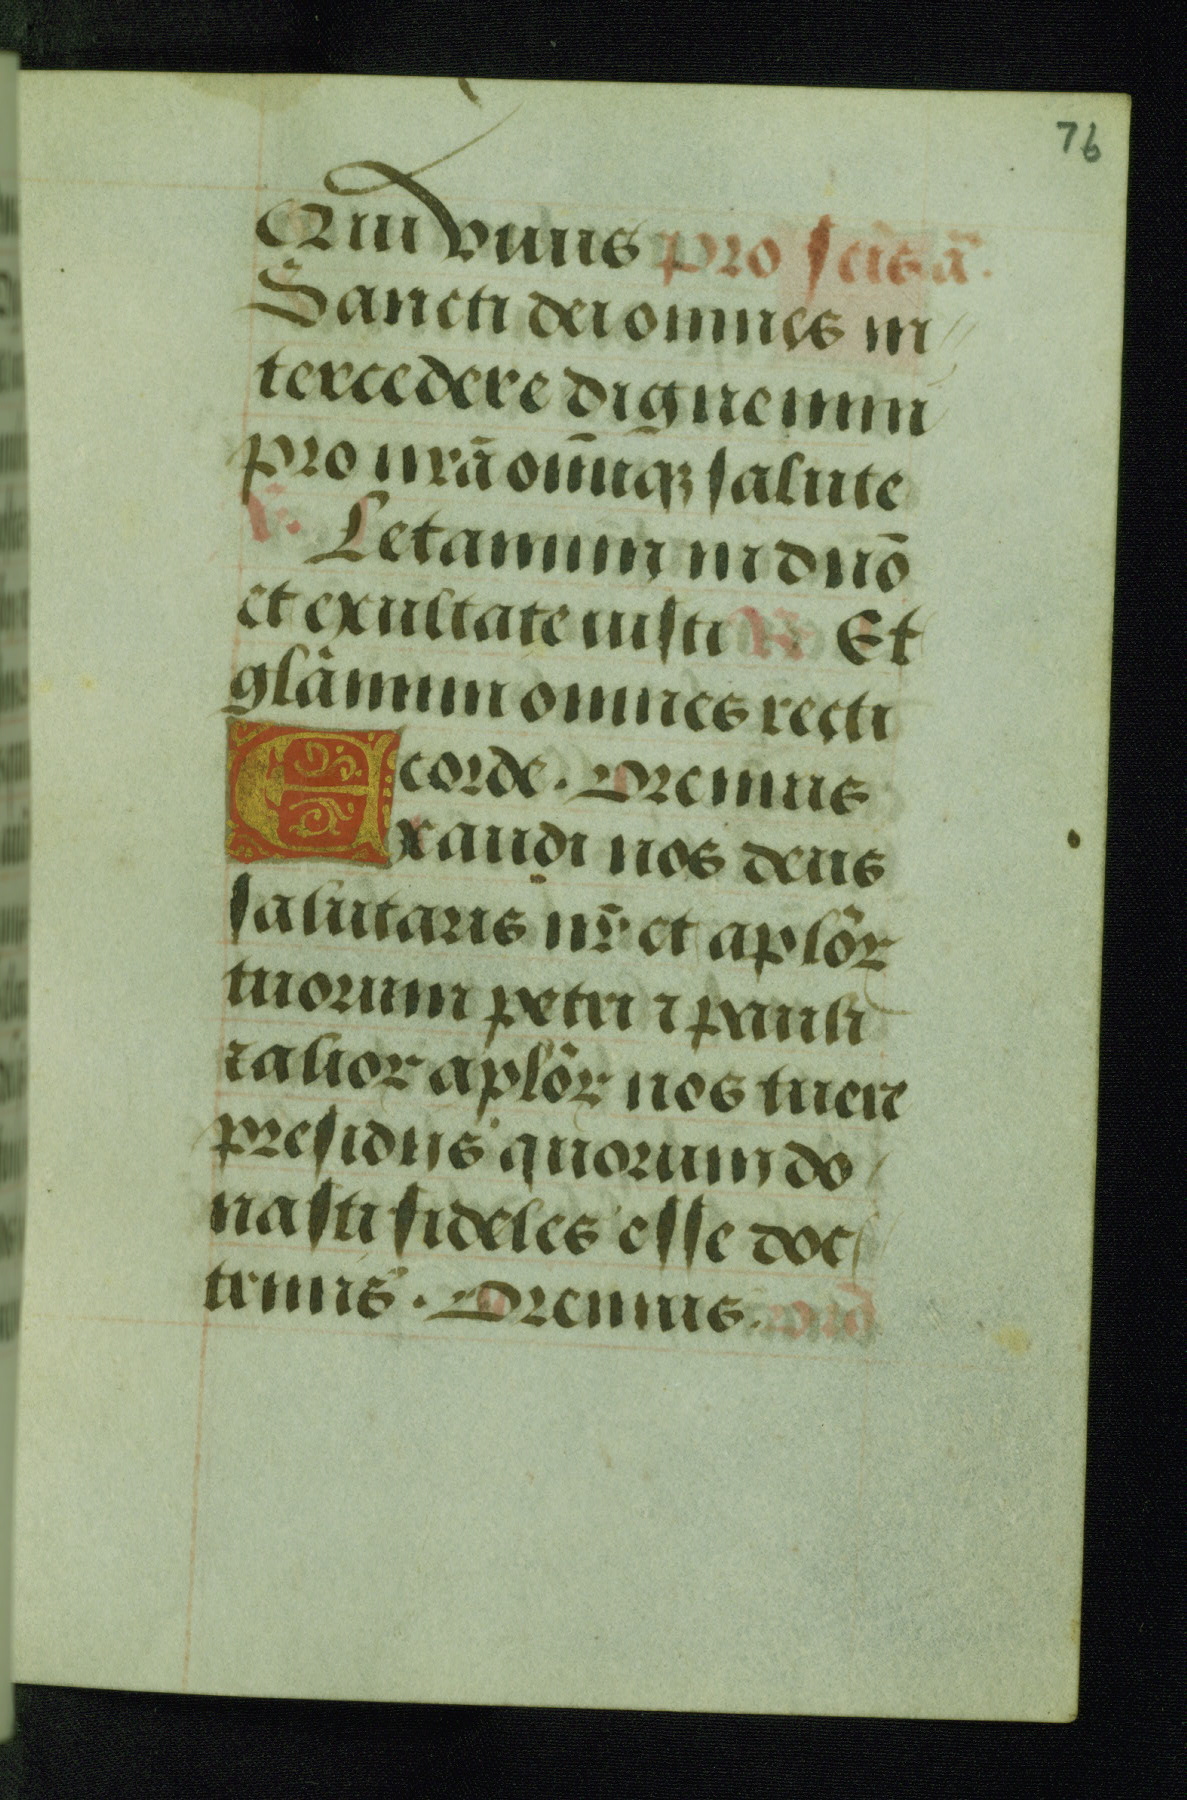 76
Qui viuis pro scis a͞.
Sancti dei omnes in
tercedere dignemini
pro nr͞a om͞iuqꝫ salute
V͞. Letamini in dn͞o
et exultate iusti R͞. Et
gl͞amini omnes recti
corde. Oremus
Exaudi nos deus
salutaris nr͞ et apl͞oꝝ
tuorum petri ⁊ pauli
⁊ alioꝝ apl͞oꝝ nos tuere
presidiis quorum do
nasti fideles esse doc
trinis. Oremus.